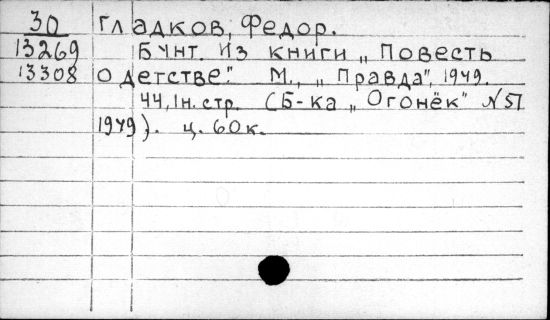 30 Гладков, Федор.
13269 Бунт. Из книги „Повесть
13308 о детстве." М., „Правда", 1949.
44, 1н. стр. (Б-ка „Огонёк" №51
1949). ц. 60к.